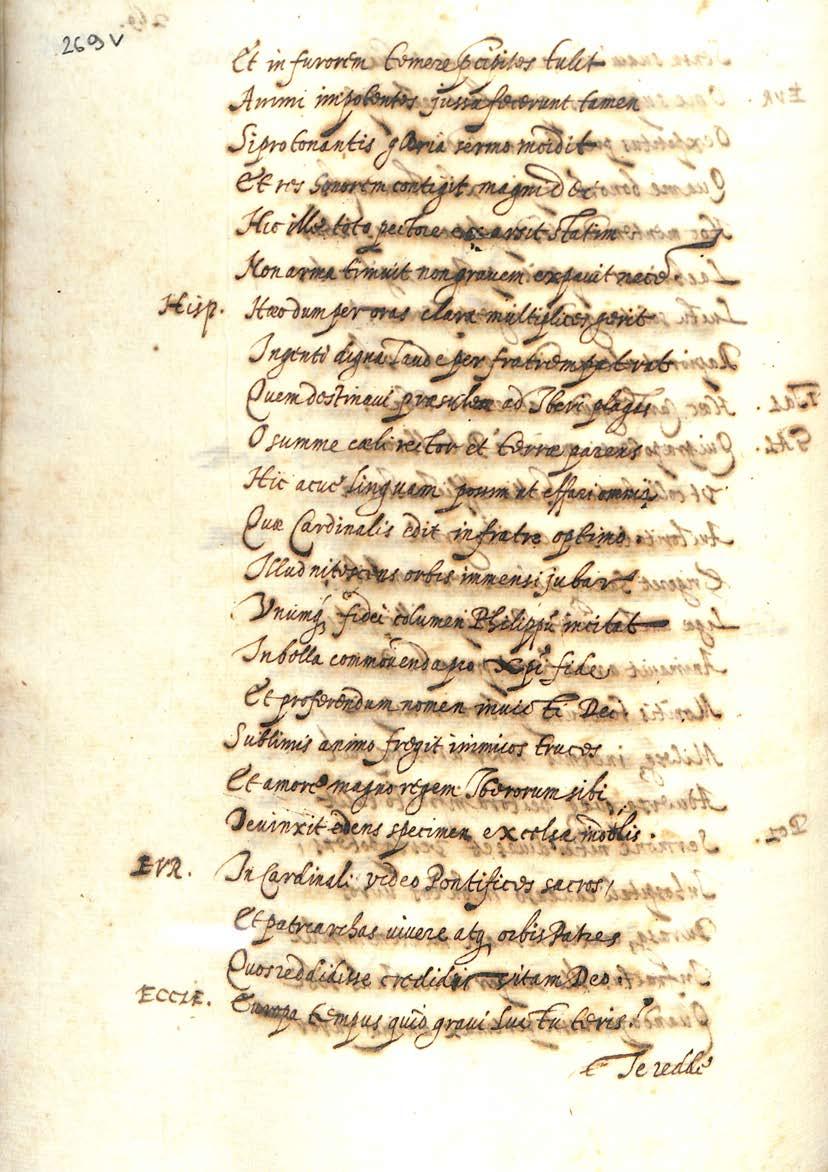 269 v
Et in furorem temere p̄cipites tulit
Animi impotentes jussa fecerunt tamen
Si pro tonantis gloria sermo incidit
Et res honorem contigit magni Dei
Hic ille toto pectore exarsit statim
Non arma timuit non gravem expavit necē
Hisp. Haec dum per oras clara multiplices gerit
Ingenti digna laude per fratrem patrat
Quem destinavi praesulem ad Iberi plagas
O summe caeli rector et terrae parens
Hic acue linguam possim ut effari omnia
Quae Cardinalis edit in fratre optimo
Illud nitescens orbis immensi jubar
Unumq; fidei columen Philippū incitat
In bella commovenda pro Xp̄i fide
Et proferendum nomen invicti Dei
Sublimis animo fregit inimicos truces
Et amore magno regem Iberorum sibi
Devinxit edens specimen excelsae
EVR. In Cardinali video Pontifices sacros,
Et patriarchas vivere atq; orbis Patres
Quos reddidisse credidi vitam Deo
ECCLE. Europa tempus quid gravi luctu teris?
Te redde